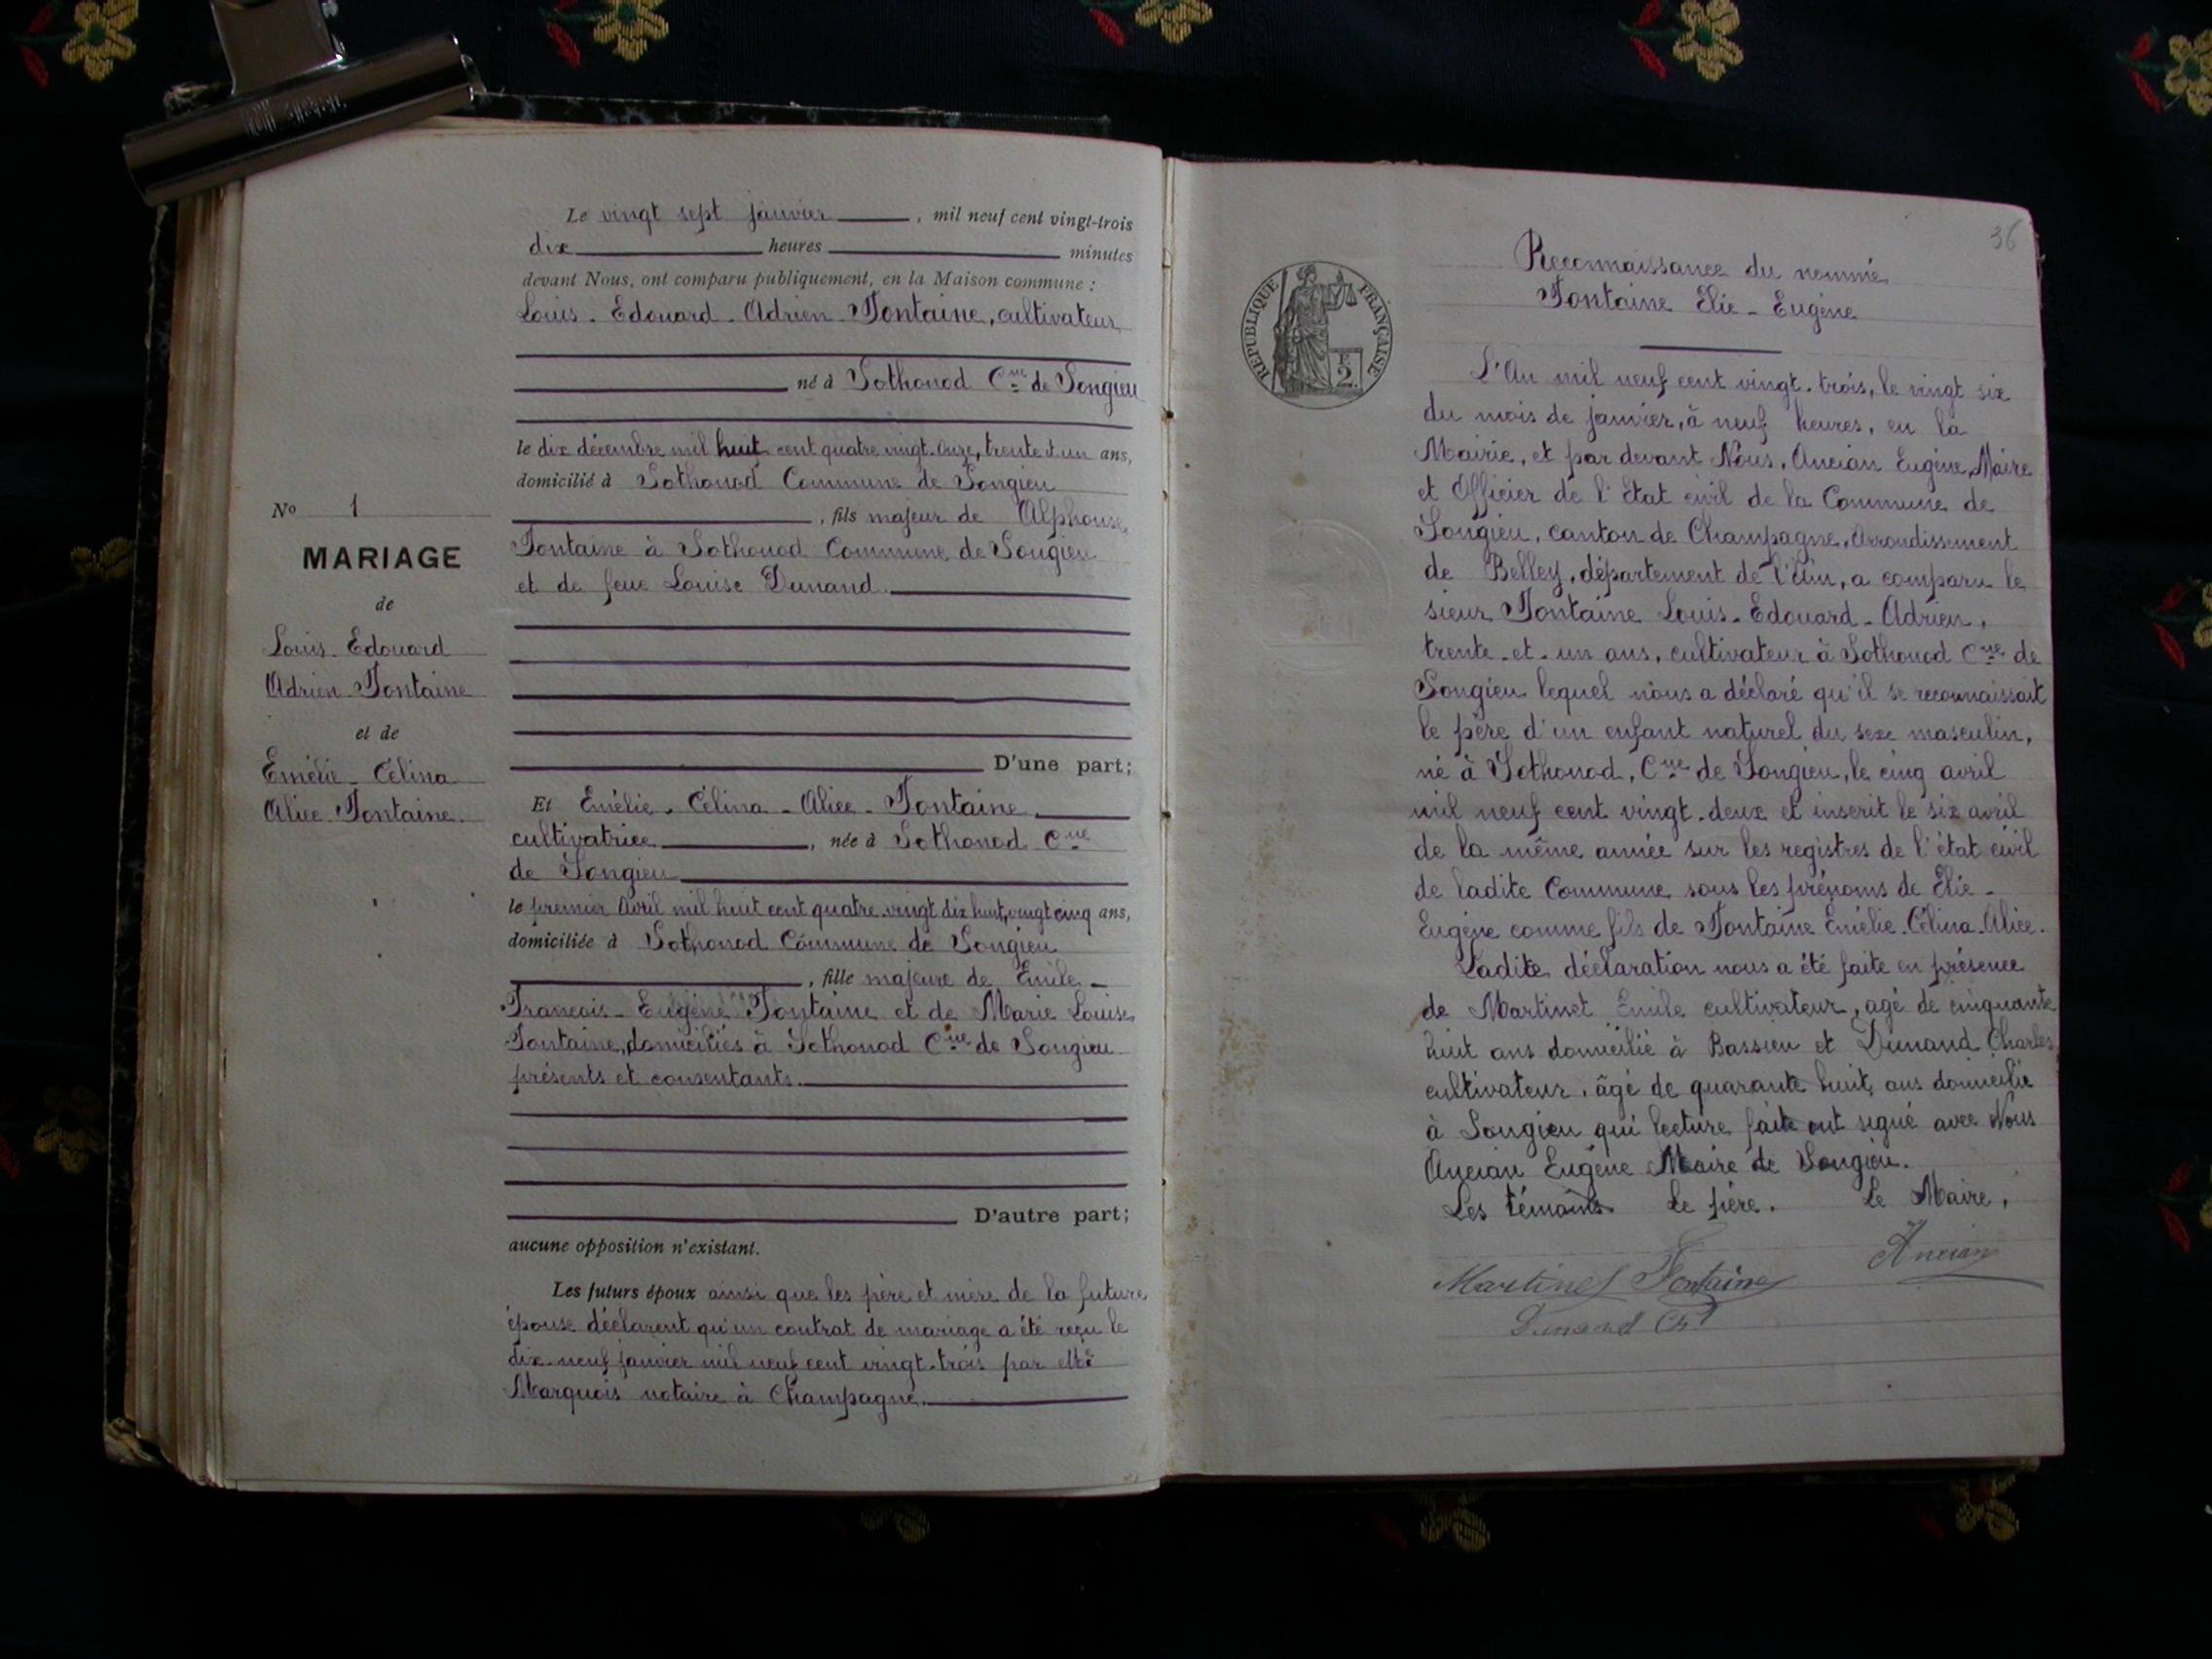 Le vingt sept janvier, mil neuf cent vingt-trois
dix heures minutes
devant Nous, ont comparu publiquement, en la Maison commune :
Louis - Edouard - Adrien - Fontaine, cultivateur
né à Sothonod Cne de Songieu
le dix décembre mil huit cent quatre vingt-onze, trente et un ans,
domicilié à Sothonod Commune de Songieu
, fils majeur de Alphonse
Fontaine à Sothonod Commune de Songieu
et de feue Louise Dunand.
D'une part;
Et Emélie - Célina - Alice - Fontaine
cultivatrice, née à Sothonod Cne
de Songieu
le premier Avril mil huit cent quatre-vingt dix huit, vingt cinq ans,
domiciliée à Sothonod Commune de Songieu
, fille majeure de Emile -
François - Eugène Fontaine et de Marie Louise
Fontaine, domiciliés à Sothonod Cne de Songieu
présents et consentants.
D'autre part;
aucune opposition n'existant.
Les futurs époux ainsi que les père et mère de la future
épouse déclarent qu'un contrat de mariage a été reçu le
dix-neuf janvier mil neuf cent vingt-trois par Me
Marquois notaire à Champagne.
No 1
MARIAGE
de
Louis - Edouard
Adrien - Fontaine
et de
Emélie - Célina
Alice - Fontaine.
36
RÉPUBLIQUE FRANÇAISE
2
Reconnaissance du nommé
Fontaine Elie - Eugène
L'An mil neuf cent vingt-trois, le vingt six
du mois de janvier, à neuf heures, en la
Mairie, et par devant Nous, Ancian Eugène, Maire
et Officier de l'Etat civil de la Commune de
Songieu, canton de Champagne, Arrondissement
de Belley, département de l'Ain, a comparu le
sieur Fontaine Louis - Edouard - Adrien,
trente-et-un ans, cultivateur à Sothonod Cne de
Songieu lequel nous a déclaré qu'il se reconnaissait
le père d'un enfant naturel du sexe masculin,
né à Sothonod, Cne de Songieu, le cinq avril
mil neuf cent vingt-deux et inscrit le six avril
de la même année sur les registres de l'état civil
de ladite Commune sous les prénoms de Elie -
Eugène comme fils de Fontaine Emélie - Célina - Alice.
Ladite déclaration nous a été faite en présence
de Martinet Emile cultivateur, agé de cinquante
huit ans domicilié à Bassieu et Dunand Charles
cultivateur, âgé de quarante huit ans domicilié
à Songieu qui lecture faite ont signé avec Nous
Ancian Eugène Maire de Songieu.
Les témoins Le père. Le Maire,
Ancian
Martinet Fontaine
Dunand Ch